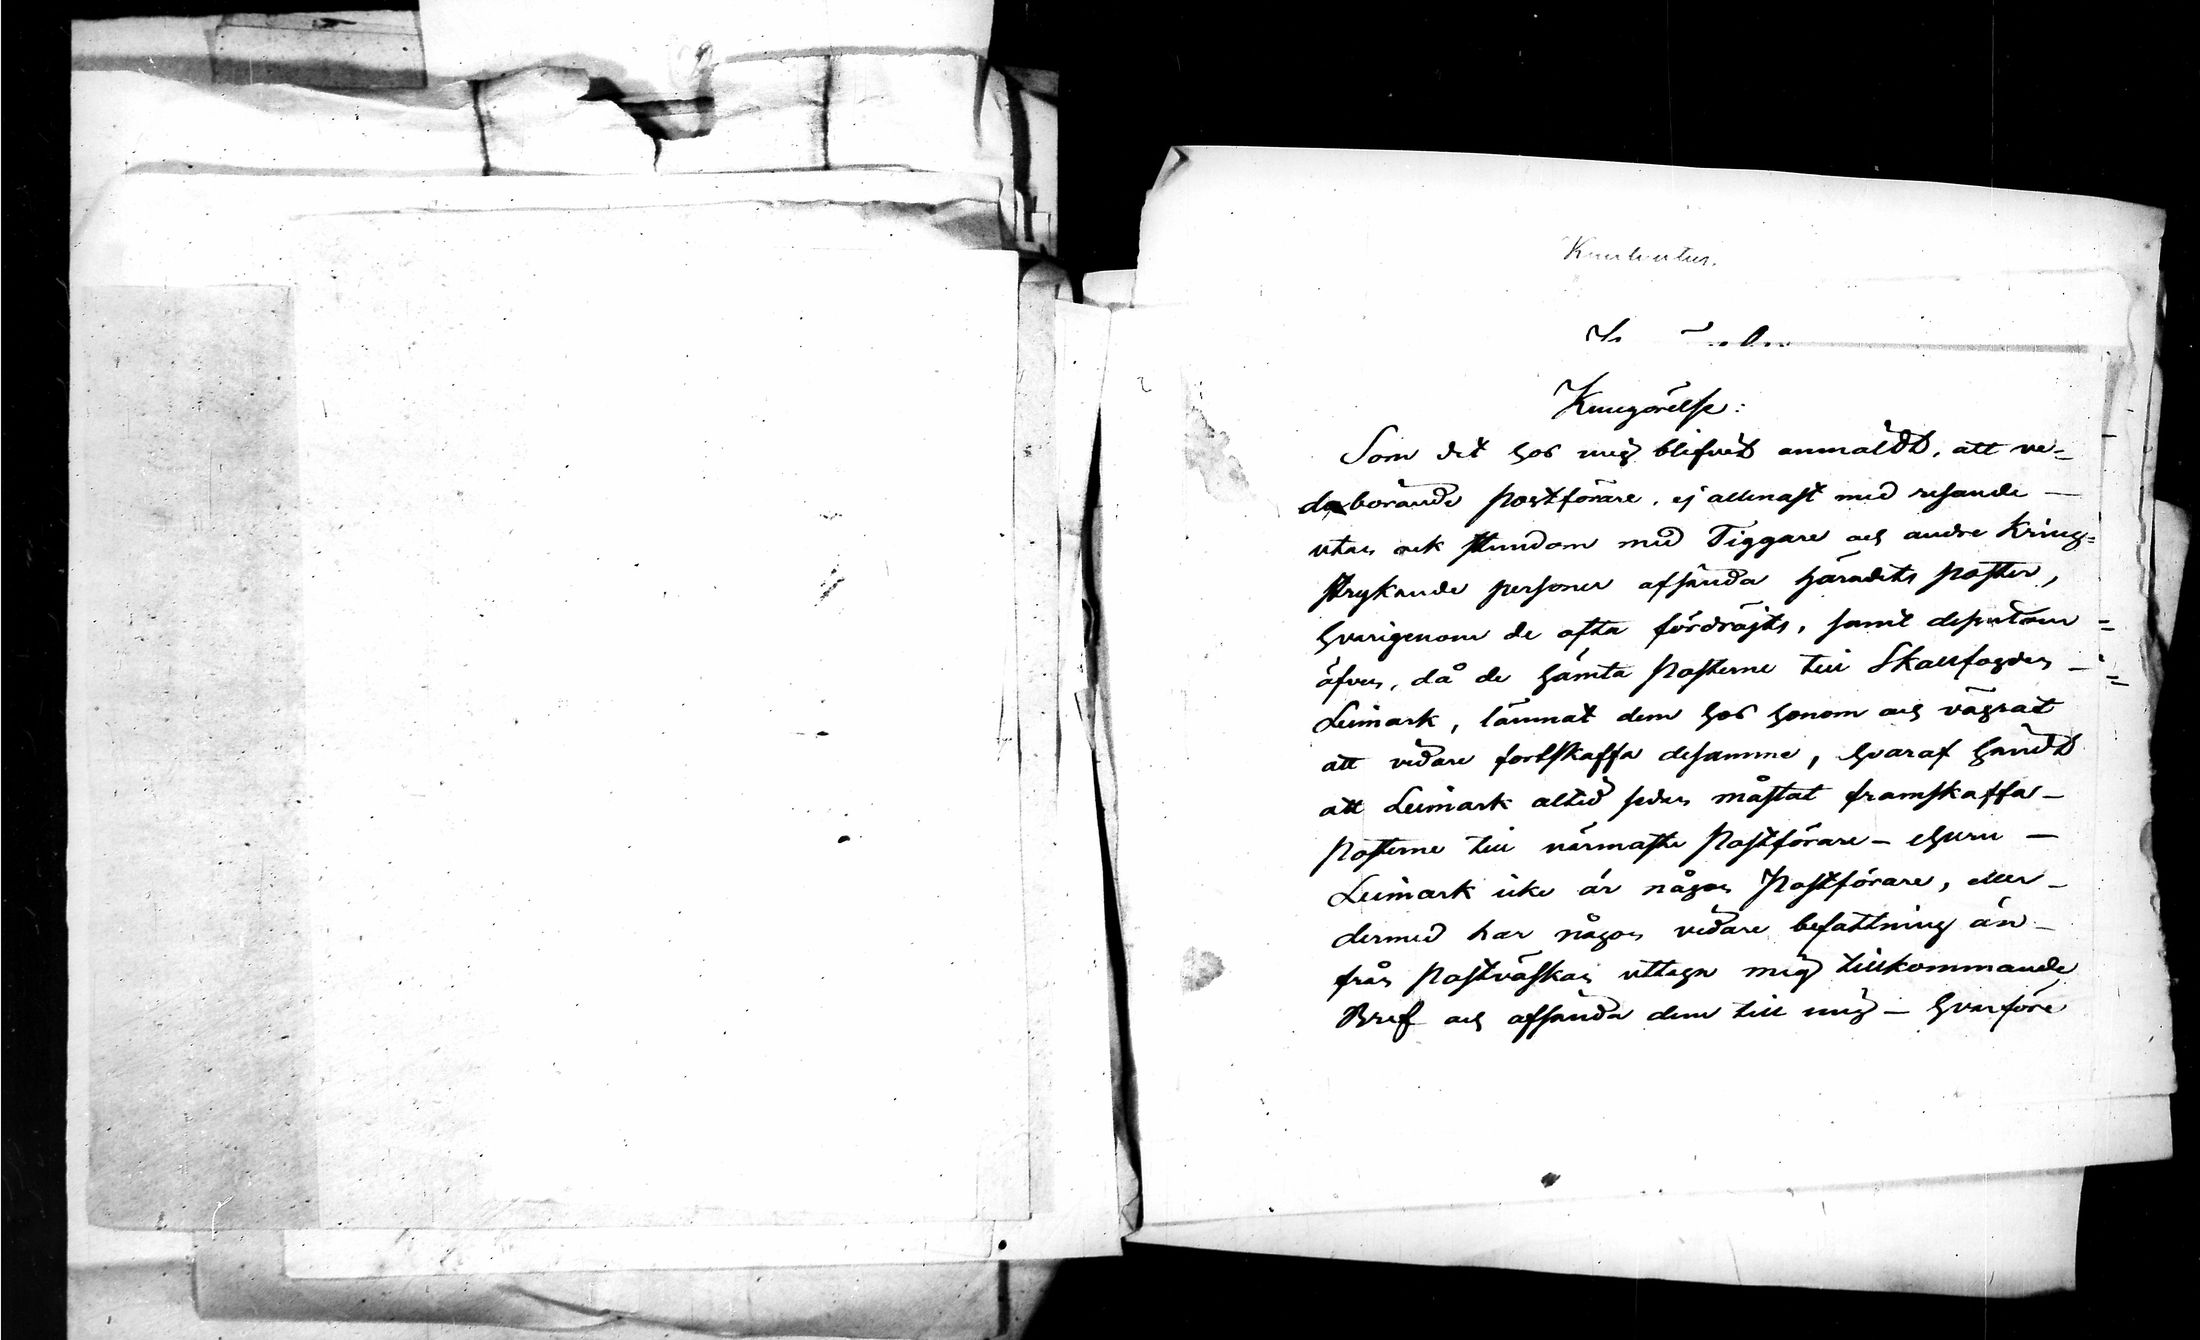 Kungörelse:
Som det hos mig blifvit anmäldt, att ve-
derbörande postförare, ej allenast med resande —
utan ock stundom med Tiggare och andre Kring=
strykande personer afsända häradets poster,
hvarigenom de ofta fördröjts, samt dessutom =
äfven, då de hämta Posterne till Skallfogden —
Leimark, lämnat dem hos honom och vägrat
att vidare fortskaffa desamme, hvaraf händt
att Leimark altid sedan måstat framskaffa —
Posterne till närmaste Postförare — ehuru —
Leimark icke är någon Postförare, eller —
dermed har någon vidare befattning än —
från Postväskan uttaga mig tillkommande
Bref och afsända dem till mig — hvarföre